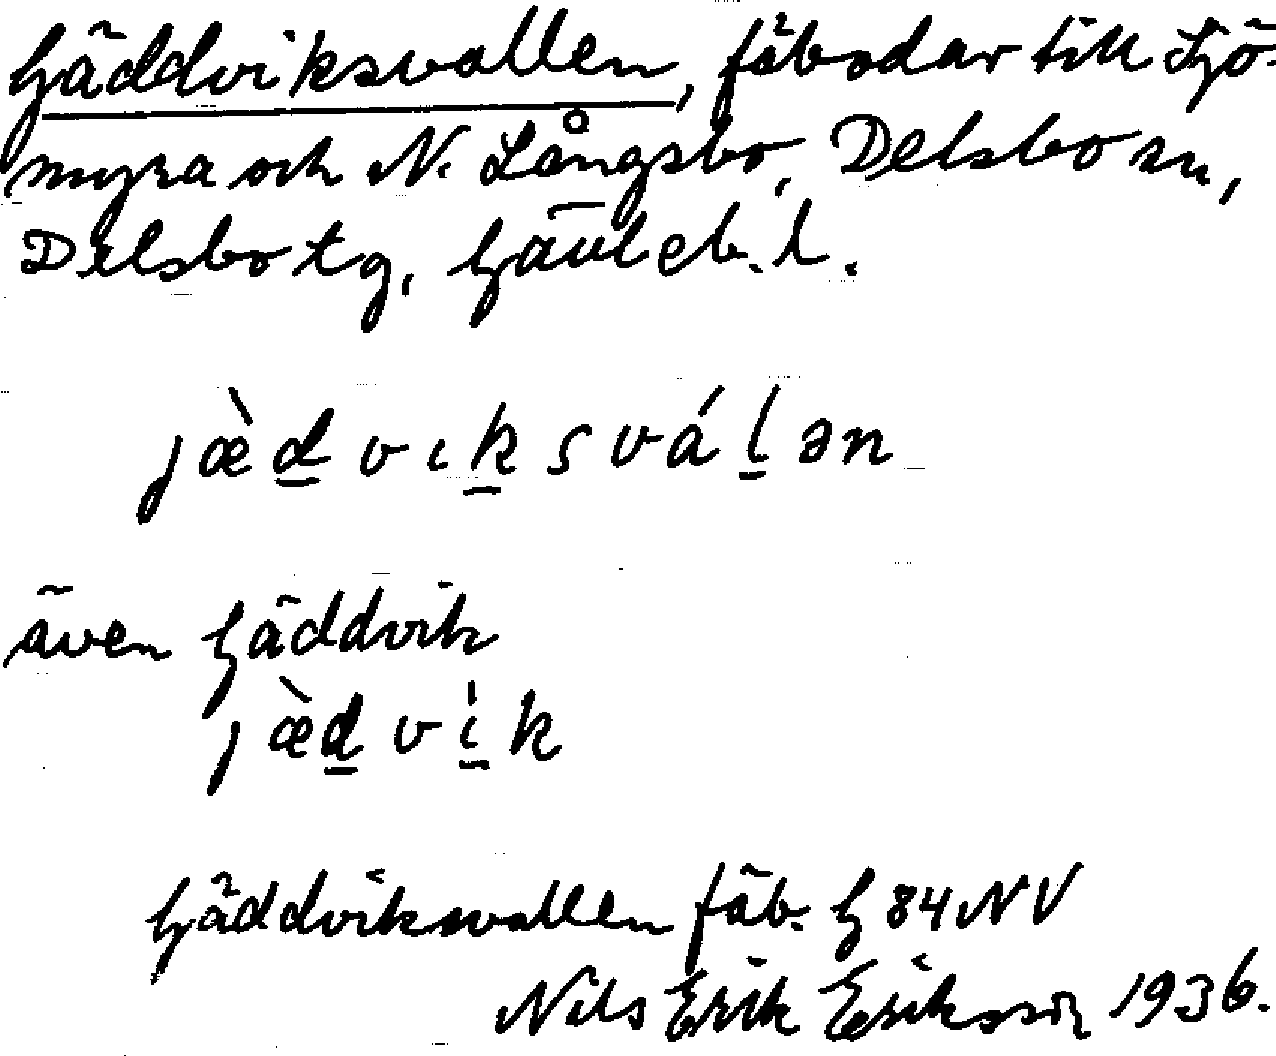 Gäddviksvallen, fäbodar till Sjö-
myra och N. Långsbo, Delsbo sn,
Delsbo tg, Gävleb. l.
jæ̀d̲vɩk̲svál̲ən
även Gäddvik
jæ̀d̲vi̲k
Gäddviksvallen fäb. G 84 NV
Nils Erik Eriksson 1936.